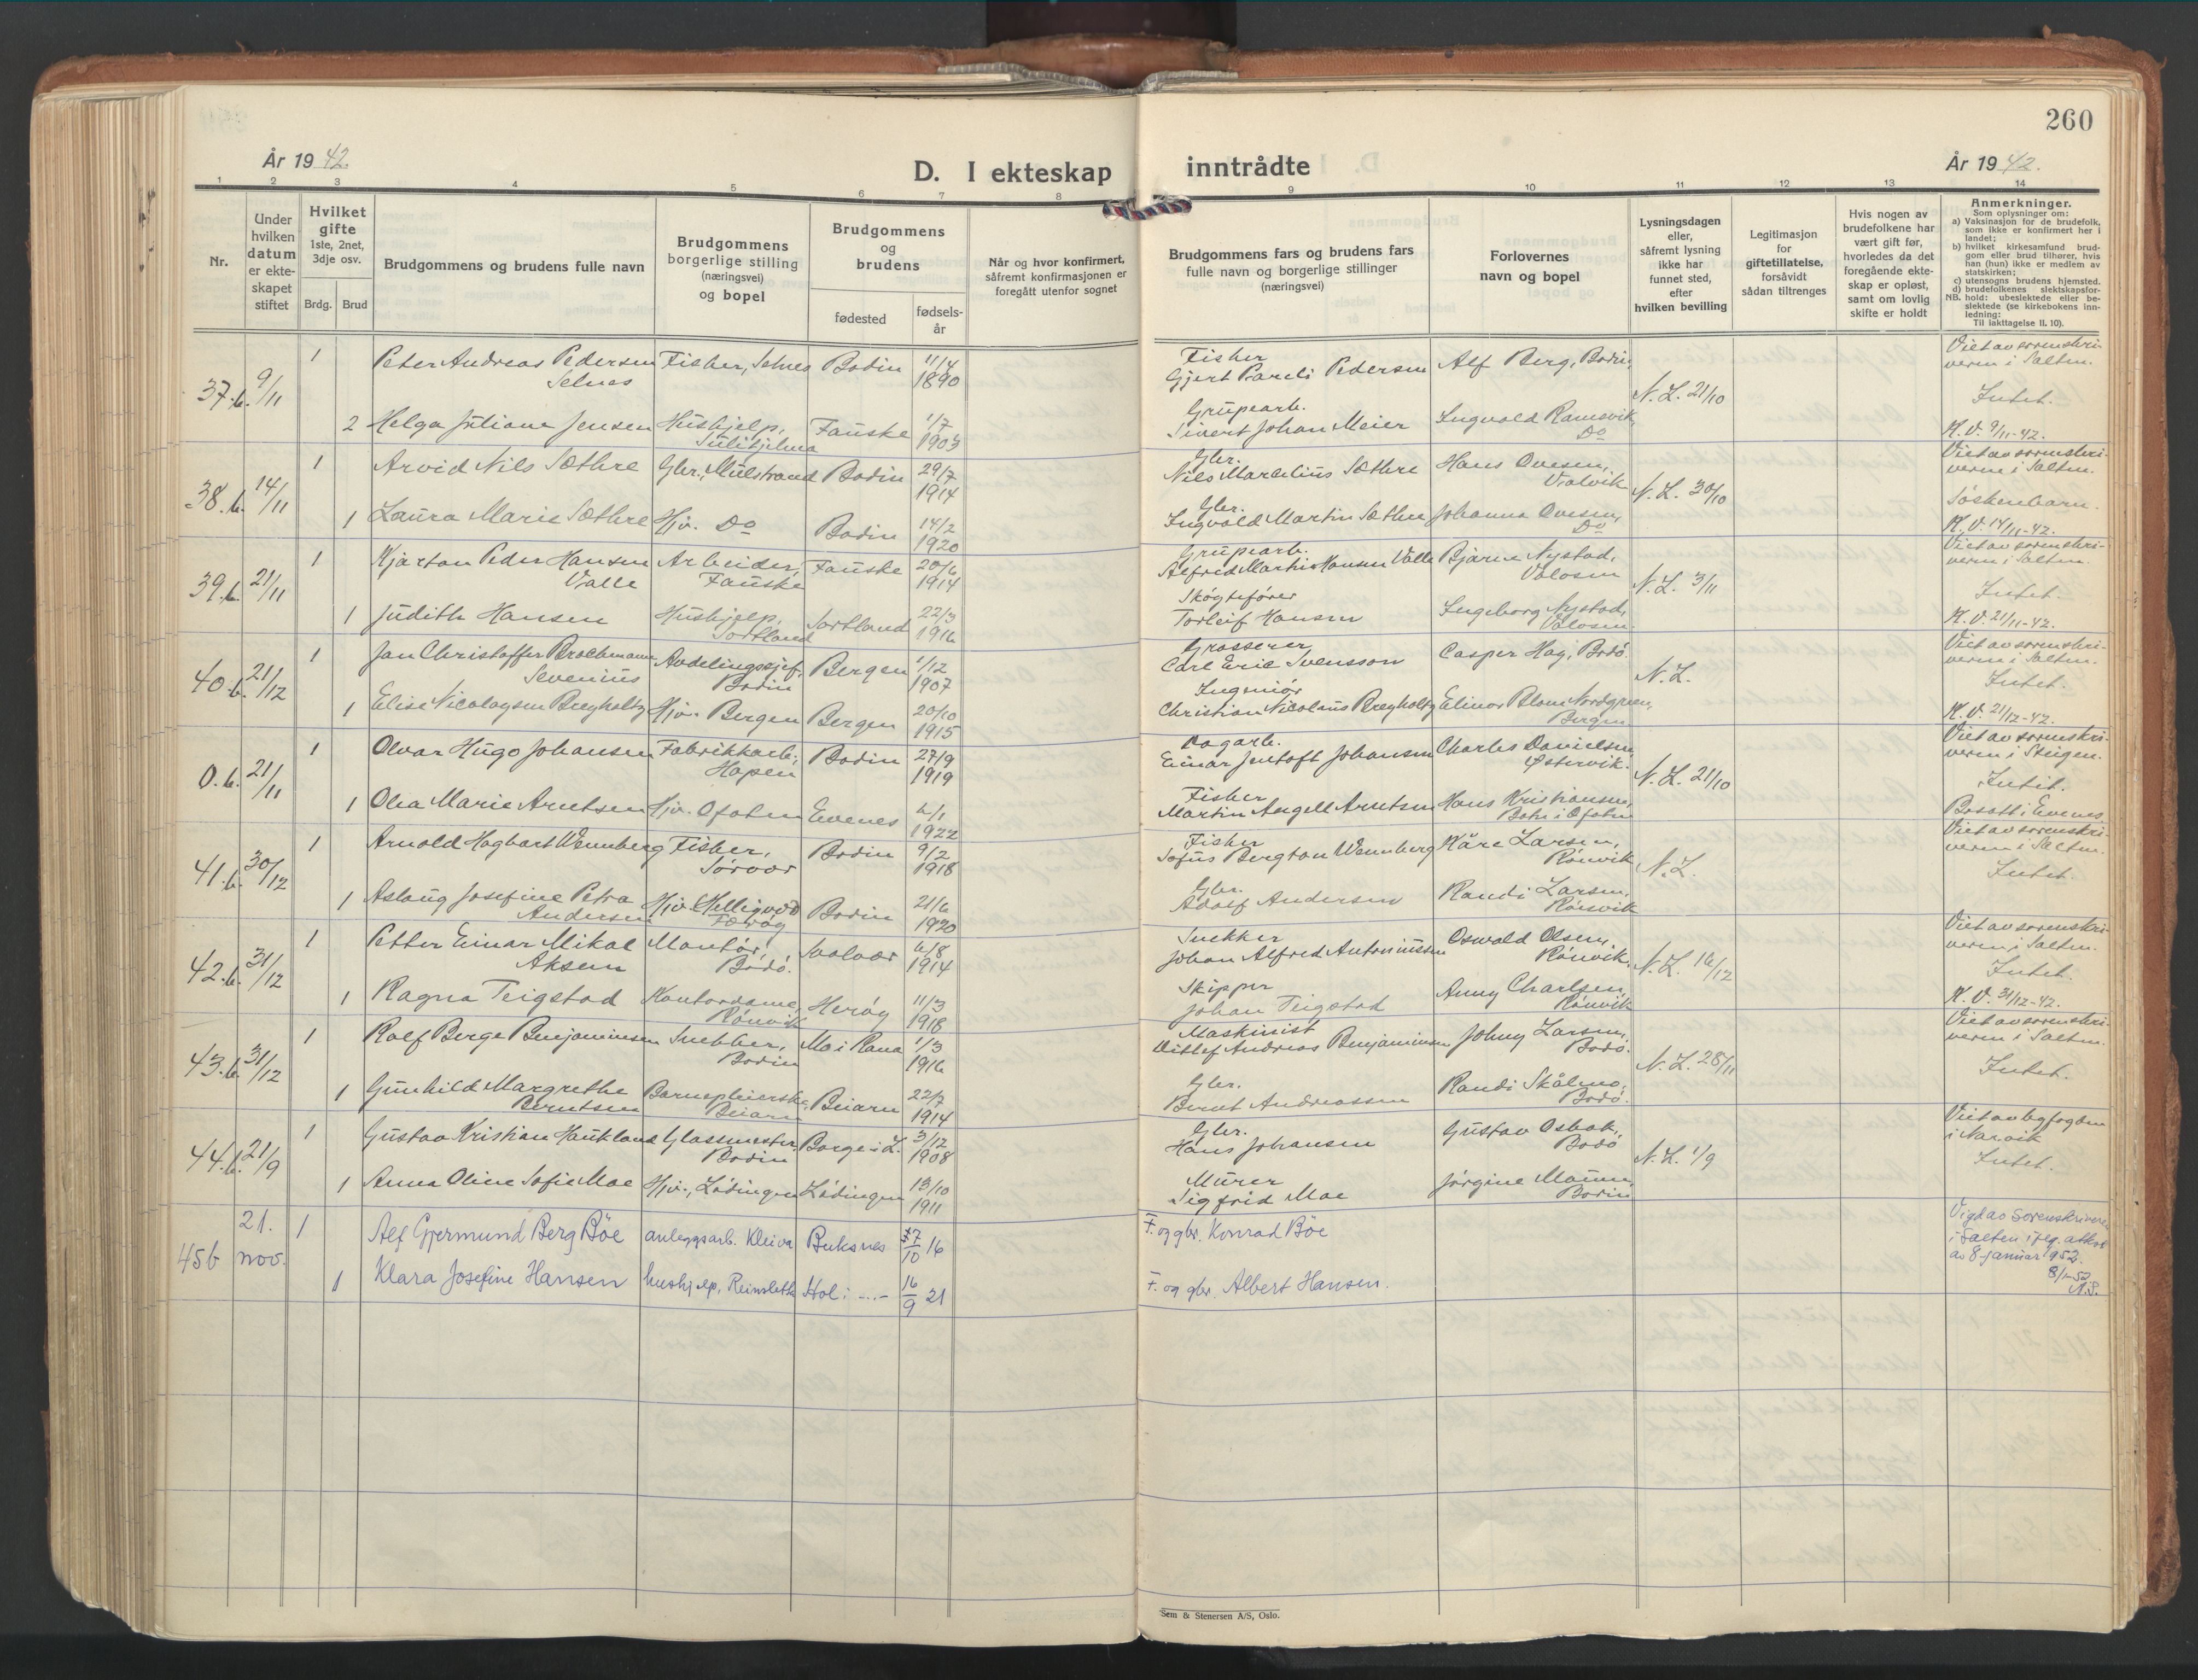 260
År 1942.
D. I ekteskap inntrådte
År 1942.
1 2 3 4 5 6 7 8 9 10 11 12 13 14
Nr.
Under hvilken datum er ekteskapet stiftet
Hvilket gifte 1ste, 2net, 3dje osv.
Brdg. Brud
Brudgommens og brudens fulle navn
Brudgommens borgerlige stilling (næringsvei) og bopel
Brudgommens og brudens
fødested
fødsels-år
Når og hvor konfirmert, såfremt konfirmasjonen er foregått utenfor sognet
Brudgommens fars og brudens fars fulle navn og borgerlige stillinger (næringsvei)
Forlovernes navn og bopel
Lysningsdagen eller, såfremt lysning ikke har funnet sted, efter hvilken bevilling
Legitimasjon for giftetillatelse, forsåvidt sådan tiltrenges
Hvis nogen av brudefolkene har vært gift før, hvorledes da det foregående ekteskap er opløst, samt om lovlig skifte er holdt
Anmerkninger.
Som oplysninger om:
a) Vaksinasjon for de brudefolk, som ikke er konfirmert her i landet;
b) hvilket kirkesamfund brudgom eller brud tilhører, hvis han (hun) ikke er medlem av statskirken;
c) utensogns brudens hjemsted.
d) brudefolkenes slektskapsforhold: ubeslektede eller beslektede (se kirkebokens innledning:
NB.
Til iakttagelse II. 10).
37.b. 9/11 1 Peter Andreas Pedersen Selnes Fisker, Selnes Bodin 11/4 1890 Fisker Gjert Pareli Pedersen Alf Berg, Bodin, N.L. 21/10 Viet av sorenskriveren i Salten.
Intet.
2 Helga Juliane Jensen Hushjelp, Sulitjelma Fauske 1/7 1903 Grupearb. Sivert Johan Meier Ingvald Ramsvik, Do K.V. 9/11-42.
38.b. 14/11 1 Arvid Nils Sæthre Gbr., Mulstrand Bodin 29/7 1914 Gbr. Nils Marelius Sæthre Hans Ovesen, Valvik N.L. 30/10 Viet av sorenskriveren i Salten.
Søskenbarn.
1 Laura Marie Sæthre Hjv. Do Bodin 14/2 1920 Gbr. Ingvald Martin Sæthre Johanna Ovesen, Do K.V. 14/11-42.
39.b. 21/11 1 Kjartan Peder Hansen Valle Arbeider, Fauske Fauske 20/6 1914 Grupearb. Alfred Martin Hansen Valle Bjarne Nystad, Valosen N.L. 3/11 Viet av sorenskriveren i Salten.
Intet.
1 Judith Hansen Hushjelp, Sortland Sortland 22/3 1916 Skøytefører Torleif Hansen Ingeborg Nystad, Valosen K.V. 21/11-42.
40.b. 21/12 1 Jan Christoffer Brochmann Sevenius Avdelingssjef, Bodin Bergen 1/12 1907 Grosserer Carl Eric Svensson Casper Hag, Bodø. N.L. Viet av sorenskriveren i Salten.
Intet.
1 Elise Nicolaysen Breyholtz Hjv. Bergen Bergen 20/10 1915 Ingeniør Christian Nicolaus Breyholtz Elinor Blom Nordgreen, Bergen K.V. 21/12-42.
0.b. 21/11 1 Olvar Hugo Johansen Fabrikkarb., Hopen Bodin 27/9 1919 Dagarb. Einar Jentoft Johansen Charles Danielsen Østervik. N.L. 21/10 Viet av sorenskriveren i Steigen.
Intet.
1 Olea Marie Arntsen Hjv. Ofoten Evenes 6/1 1922 Fisker Martin Angell Arntsen Hans Kristiansen, Botn i Ofoten Bosatt i Evenes
41.b. 30/12 1 Arnold Hagbart Wennberg Fisker, Sørvær Bodin 9/2 1918 Fisker Sofus Bergton Wennberg Kåre Larsen, Rønvik N.L. Viet av sorenskriveren i Salten.
Intet.
1 Aslaug Josefine Petra Andersen Hjv. Helligvær Bodin 21/6 1920 Gbr. Adolf Andersen Randi Larsen, Rønvik
42.b. 31/12 1 Petter Einar Mikal Aksen Montør, Bodø. Svolvær 6/8 1914 Snekker Johan Alfred Antoniussen Oswald Olsen, Rønvik. N.L. 16/12 Viet av sorenskriveren i Salten.
Intet.
1 Ragna Teigstad Kontordame, Rønvik Herøy 11/3 1918 Skipper Johan Teigstad Anny Charlsen, Rønvik K.V. 31/12-42.
43.b. 31/12 1 Rolf Berge Benjaminsen Snekker, Bodin Mo i Rana 1/3 1916 Maskinist Ditlef Andreas Benjaminsen Johny Larsen, Bodø. N.L. 28/11 Viet av sorenskriveren i Salten.
Intet.
1 Gunhild Margrethe Berntsen Barnepleierske, Beiarn Beiarn 22/7 1914 Gbr. Bernt Andreassen Randi Skålmo, Bodø.
44.b. 21/9 1 Gustav Kristian Haukland Glassmester, Bodin Borge i L. 3/12 1908 Gbr. Hans Johansen Gustav Osbak, Bodø N.L. 1/9 Viet av byfogden i Narvik
Intet.
1 Anna Oline Sofie Moe Hjv., Lødingen Lødingen 13/10 1911 Murer Sigfrid Moe Jørgine Maunu, Bodin
45b 21. nov. 1 Alf Gjermund Berg Böe anleggsarb. Kleiva Buksnes 7/10 16 F. og gbr. Konrad Böe Vigd av sorenskriveren i Salten iflg. attest av 8 januar 1952.
8/1-52
1 Klara Josefine Hansen hushjelp, Reinsletta Hol i -..- 16/9 21 F. og gbr. Albert Hansen.
Sem & Stenersen A/S, Oslo.